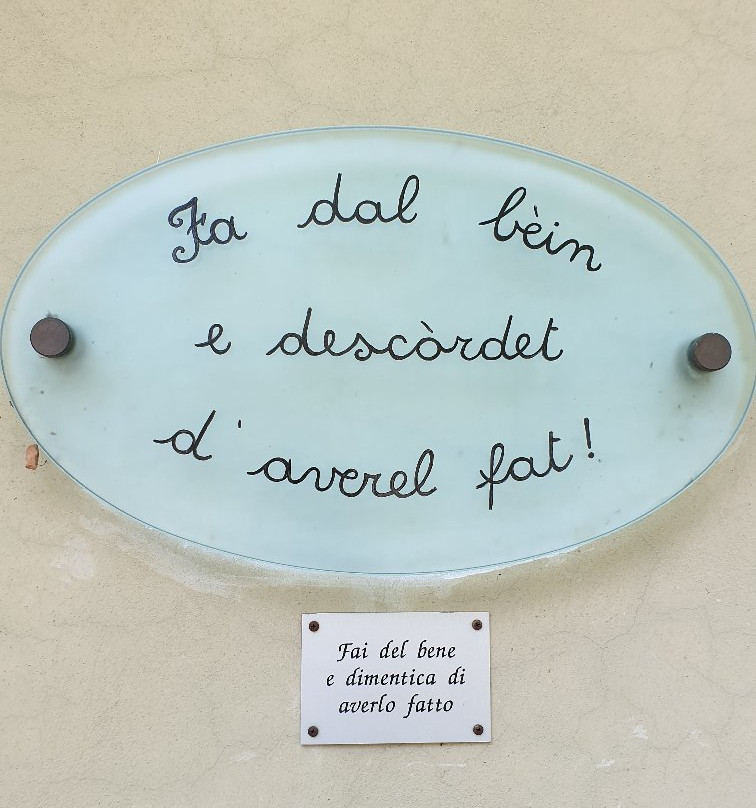 Fa dal bèin
e descòrdet
d'averel fat!
Fai del bene
e dimentica di
averlo fatto